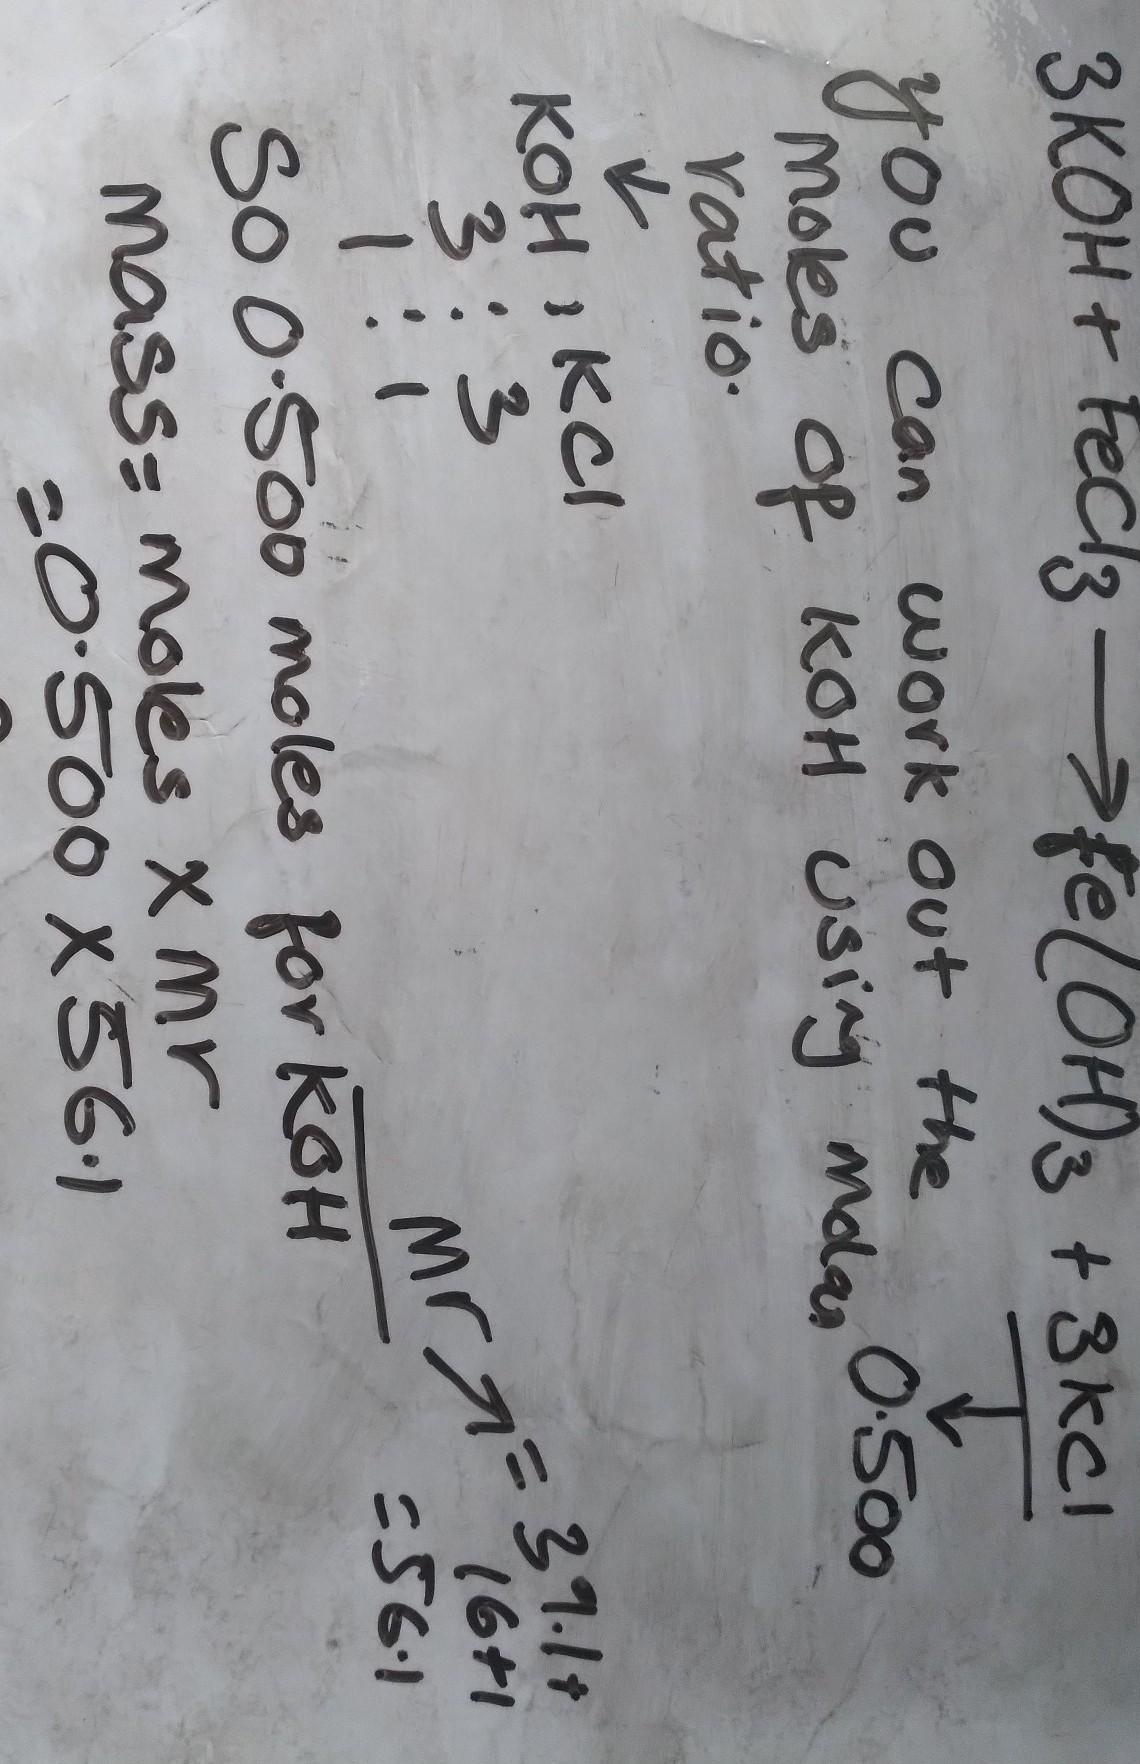 3KOH + FeCl3 → Fe(OH)3 + 3KCl
you can work out the
moles of KOH using molar 0.500
ratio.
KOH : KCl
3 : 3
1 : 1
Mr → = 39.1+
16+1
= 56.1
So 0.500 moles for KOH
Mass = moles x Mr
= 0.500 x 56.1